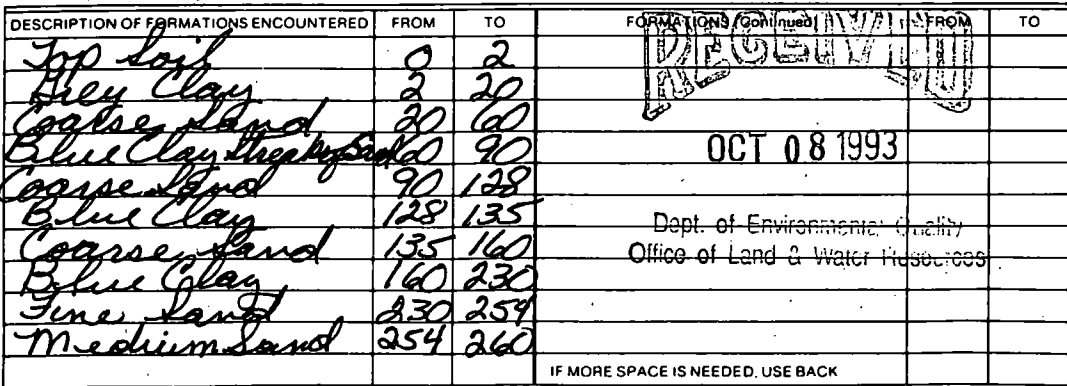 DESCRIPTION OF FORMATIONS ENCOUNTERED FROM TO
Top Soil 0 2
Grey Clay 2 20
Coarse Sand 20 60
Blue Clay Streaky Sand 60 90
Coarse Sand 90 128
Blue Clay 128 135
Coarse Sand 135 160
Blue Clay 160 230
Fine Sand 230 254
Medium Sand 254 260
FORMATIONS (Continued) FROM TO
RECEIVED
OCT 08 1993
Dept. of Environmental Quality
Office of Land & Water Resources
IF MORE SPACE IS NEEDED, USE BACK